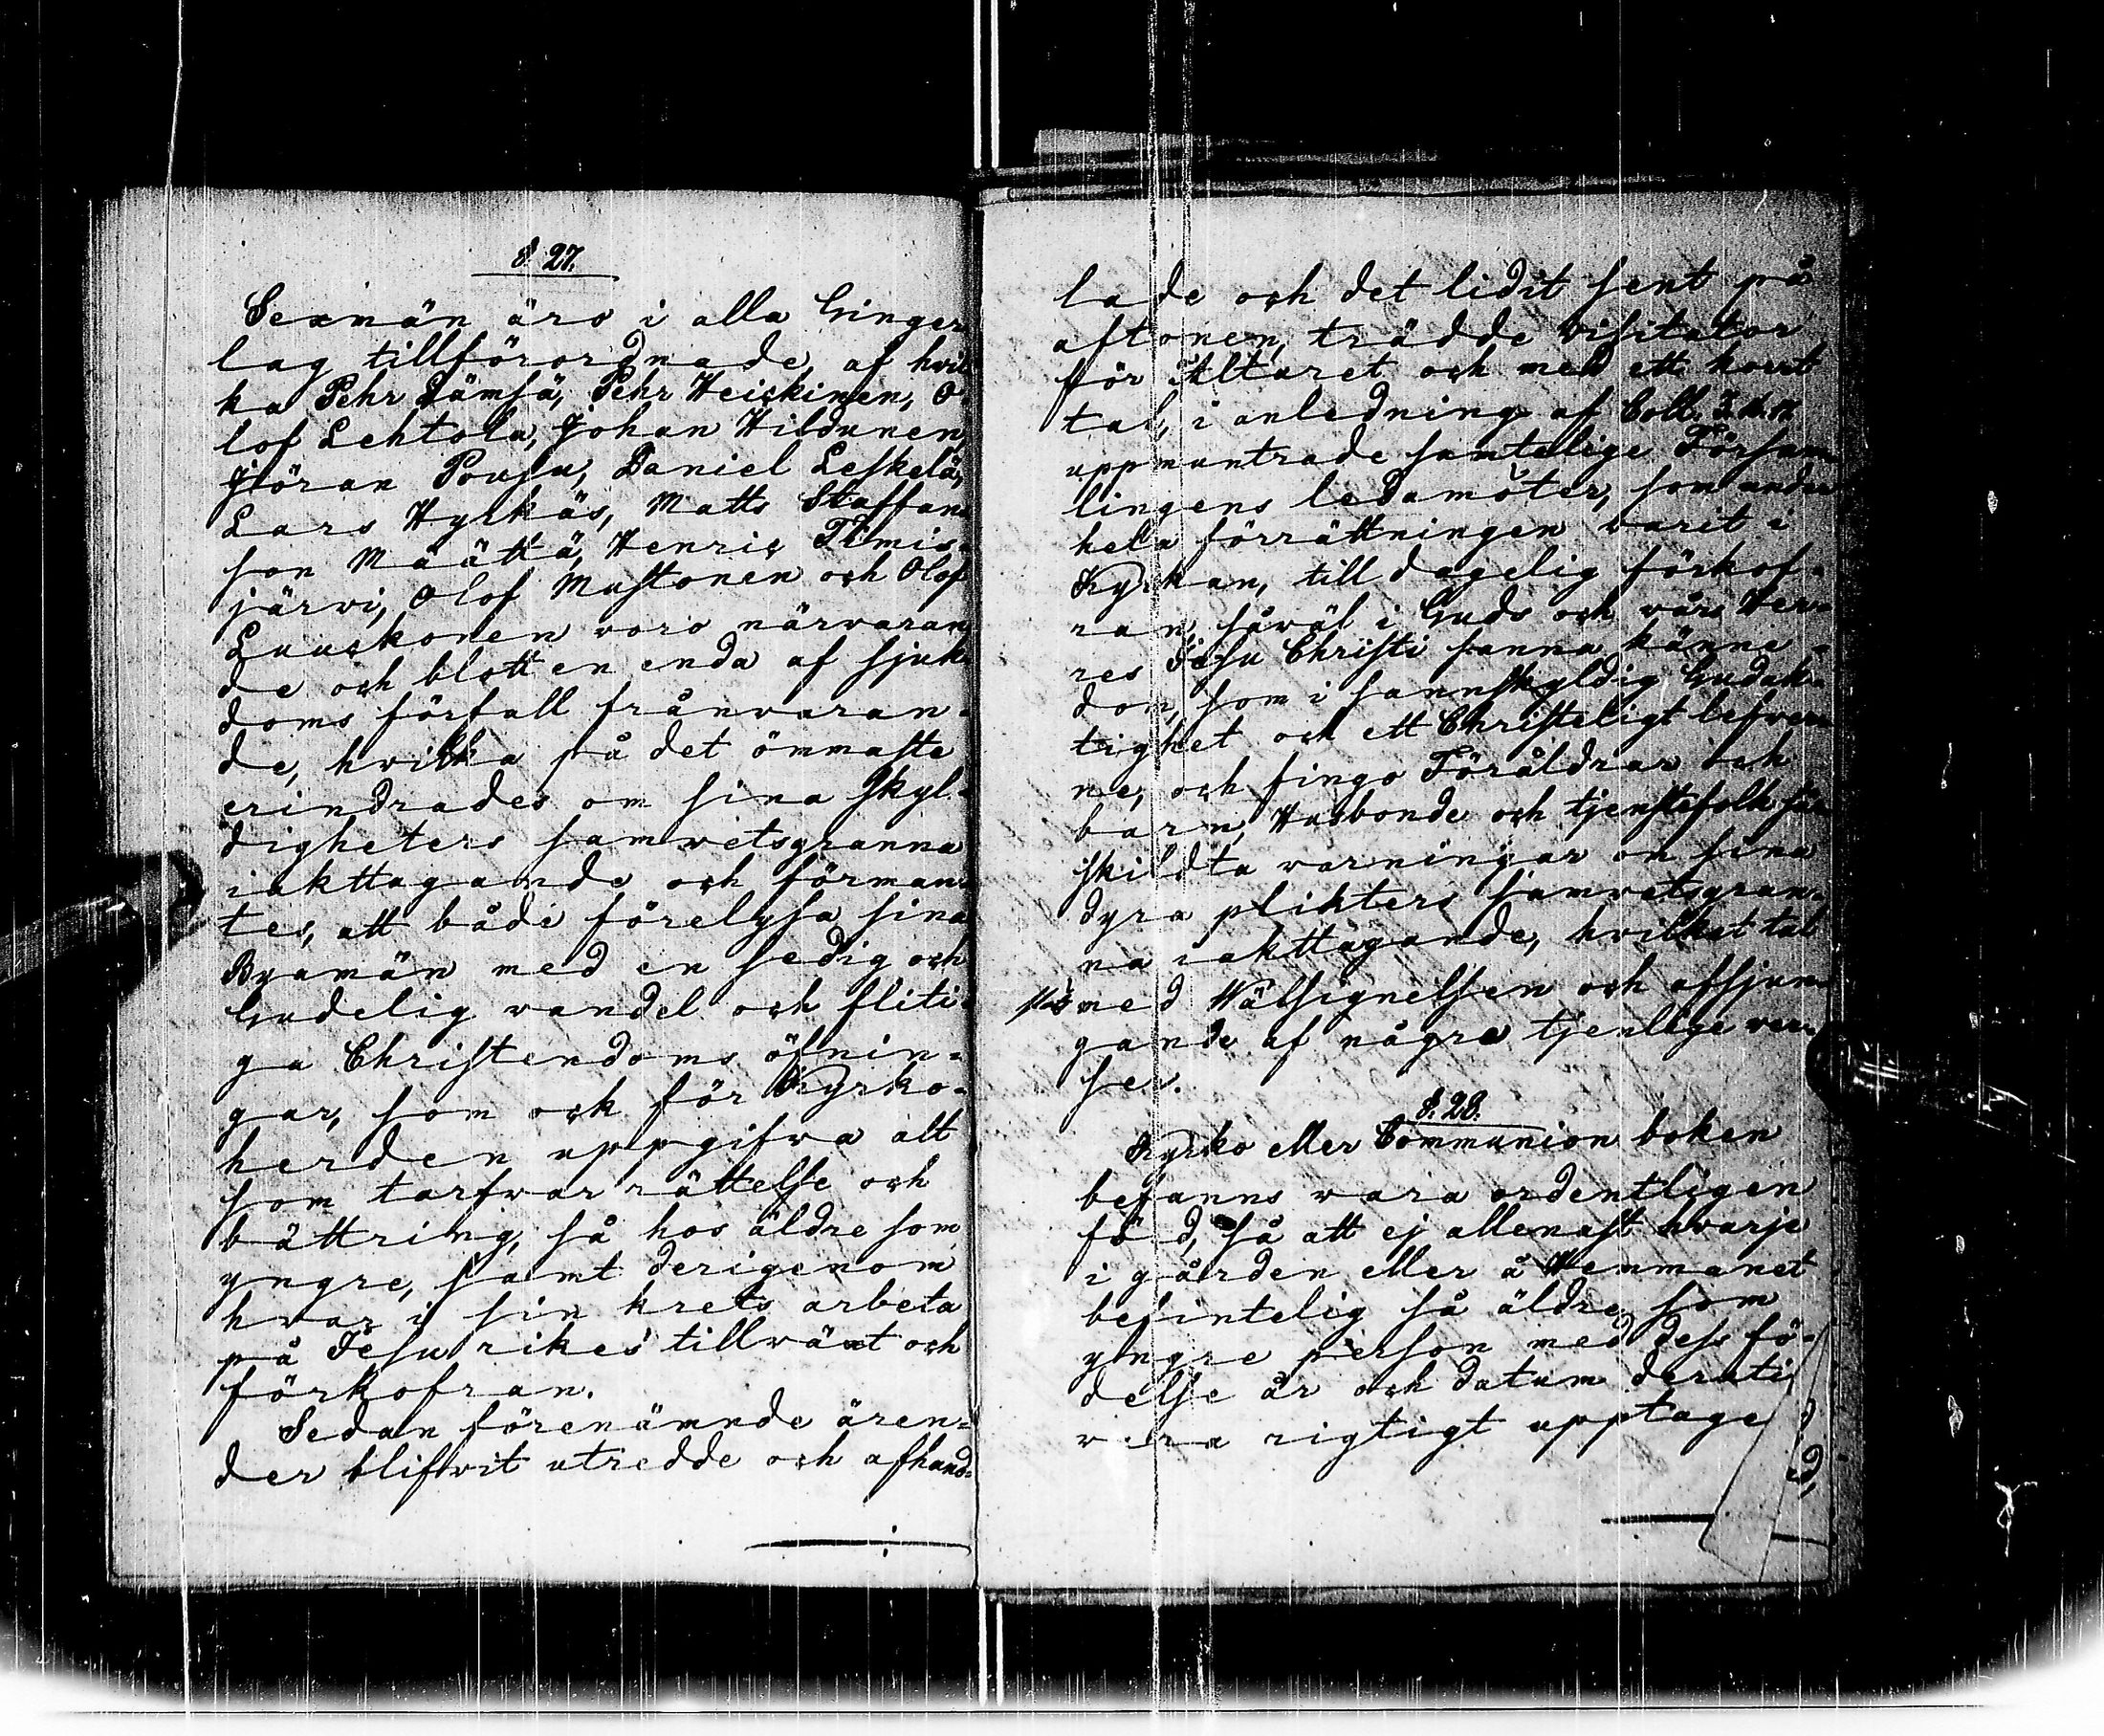 § 27.
Sexmän äro i alla Ginger
lag tillförordnade, af hvil
ka Pehr Jämsä, Pehr Heickinen, O
lof Lehtola, Johan Hildunen,
Jöran Pousu, Daniel Leskelä,
Lars Hyrkäs, Matts Staffans
son Määttä, Henric Timis-
järvi, Olof Mustonen och Olof
Luuckonen voro närvaran
de och blott en enda af sjuk
doms förfall frånvaran-
de, hvilka på det ömmaste
erindrades om sina skyl-
digheters samvetsgranna
iakttagande och förman-
tes, att både förelysa sina
Byamän med en sedig och
Gudelig vandel och fliti-
ga Christendoms öfnin-
gar, som ock för Kyrko-
herden uppgifva alt
som tarfvar rättelse och
bättring, så hos äldre som
yngre, samt derigenom
hvar i sin krets arbeta
på Jesu rikes tillväxt och
förkofran.
Sedan förenämnde ären-
der blifvit utredde och afhand-
lade och det lidit sent på
aftonen, trädde visitator
för Altaret och med ett kort
tal, i anledning af Coll. 3. 16. 17.
uppmuntrade samtelige Försam
lingens ledamöter, som under
hela förrättningen varit i
Kyrkan, till dagelig förkof-
ran, såväl i Guds och vårs Her-
res Jesu Christi sanna känne-
dom, som i sannskyldig Gudak-
tighet och ett Christeligt lefver
ne, och fingo Föräldrar och
barn, Husbonde och tjenstefolk sär
skildta varningar om sina
dyra plikters samvetsgran-
na iakttagande, hvilket tal
med Välsignelsen och afsjun-
gande af några tjenlige ver-
ser.
§. 28.
Kyrko eller Communion boken
befanns vara ordentligen
förd, så att ej allenast hvarje
i gården eller å Hemmanet
befintelig så äldre som
yngre person med dess fö-
delse år och datum deruti
vara rigtigt upptage